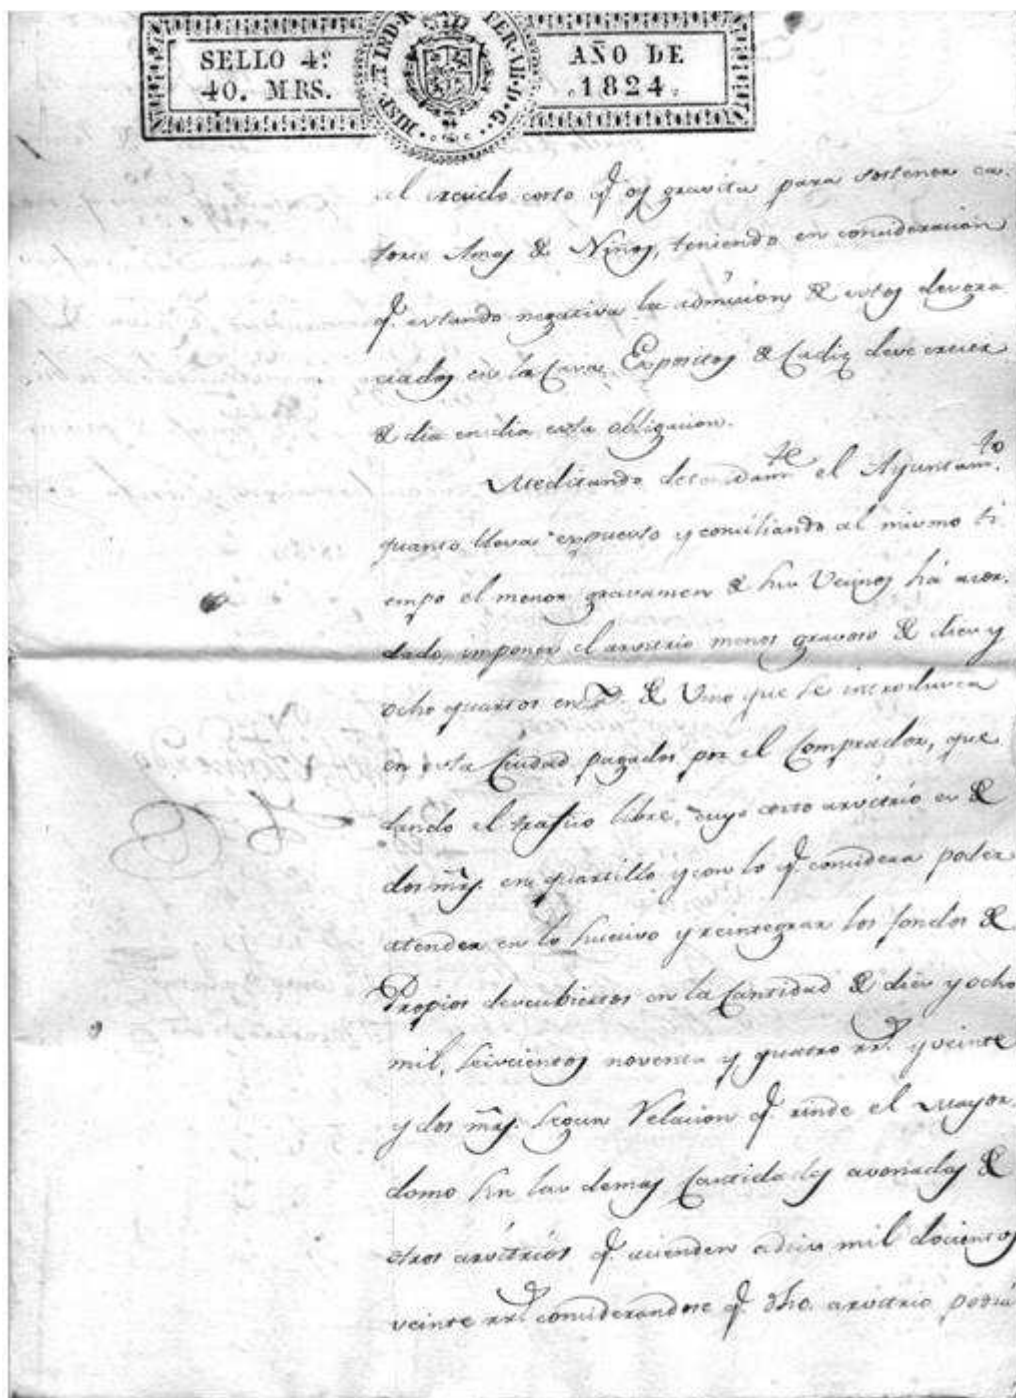 SELLO 4º
40. MRS.
HISP. ET IND. R. FER. VII. D. G.
AÑO DE
1824.
el crecido costo q.e oy gravita para sostener ca-
torce Amas de Niños, teniendo en consideracion
q.e estando negativa la admision de estos desgra
ciados en la Casa Expositos de Cadiz deve crecer
de dia en dia esta obligacion.
Meditando detenidam.te el Ayuntam.to
quanto lleva expuesto y conciliando al mismo ti
empo el menor gravamen de sus Vecinos há acor-
dado imponer el arvitrio menos gravoso de dies y
ocho quartos en @. de Vino que se introdusca
en esta Ciudad pagados por el Comprador, que
dando el trafico libre, cuyo corto arvitrio es de
dos mrs. en quartillo y con lo q.e considera poder
atender en lo sucesivo y reintegrar los fondos de
Propios descubiertos en la Cantidad de dies y ocho
mil, seiscientos noventa y quatro rr.s y veinte
y dos mrs. segun Relacion q.e rinde el Mayor-
domo sin las demas Cantidades avonadas de
otros arvitrios q.e acienden adies mil docientos
veinte rr.s considerandose q.e dho. arvitrio podrá